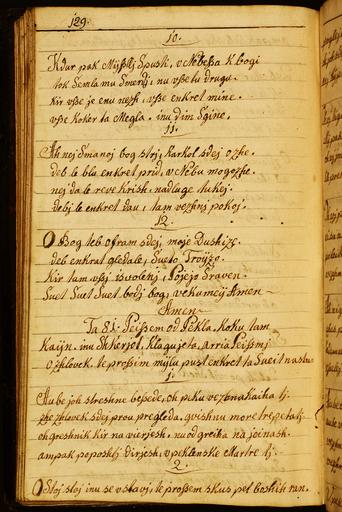 129.
10.
Kdar pak Misslj Spusk, v Nebessa k bogi
tok Semla mu Smerdj, nu vsse tu drugu.
Kir vsse je enu nessh, vsse enkret mine.
vsse koker ta Megla. inu dim Sgine.
11.
Ah nej Smanoj bog storj, karkol sdej ozhe.
deb le bla enkret prid, v Nebu mogozhe.
nej da le reve krish. nadluge tukej.
debj le enkret dau, tam vezhnj pokoj.
12.
O Bog teb ofram sdej, moje Dushize.
deb enkrat gledale, Sueto Troijzo.
Kir tam vsij isvolenj, Pojejo Sraven.
Suet Suet Suet bodj bog, vekumej Amen
Amen
Ta 81. Peissem od Pekla. Koku tam
Kaijn. inu Shkerjot, klagujeta, arria Peissmj
O zhlovek. te prossim mijlu pust enkret ta Sueit nastran
1.
Hube joh streshne bessede, oh piku vezhna
zhe zhlovek sdej prou pregleda. gvishnu more trepetatj
oh greshnik Kir na vierjesh, nu od greika na joinash.
ampak poposhlj virjesh, v peklenske Martre tj.
2.
O Stoj stoj inu se vstavj, te prossem skus pet boshih ran.